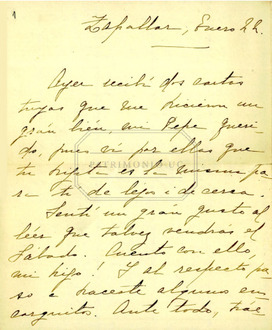 Zapallar, Enero 22.
Ayer recibí dos cartas
tuyas que me hicieron un
gran bién, mi Pepe queri-
do, pues ví por ellas que
tu Pepita es la misma pa-
ra ti de lejos i de cerca.
Sentí un gran gusto al
léer que talvez vendrás el
Sábado. Cuento con ello,
mi hijo! I al respecto pa-
so a hacerte algunos en-
carguitos. Ante todo, tráe-
PATRIMONIO UC